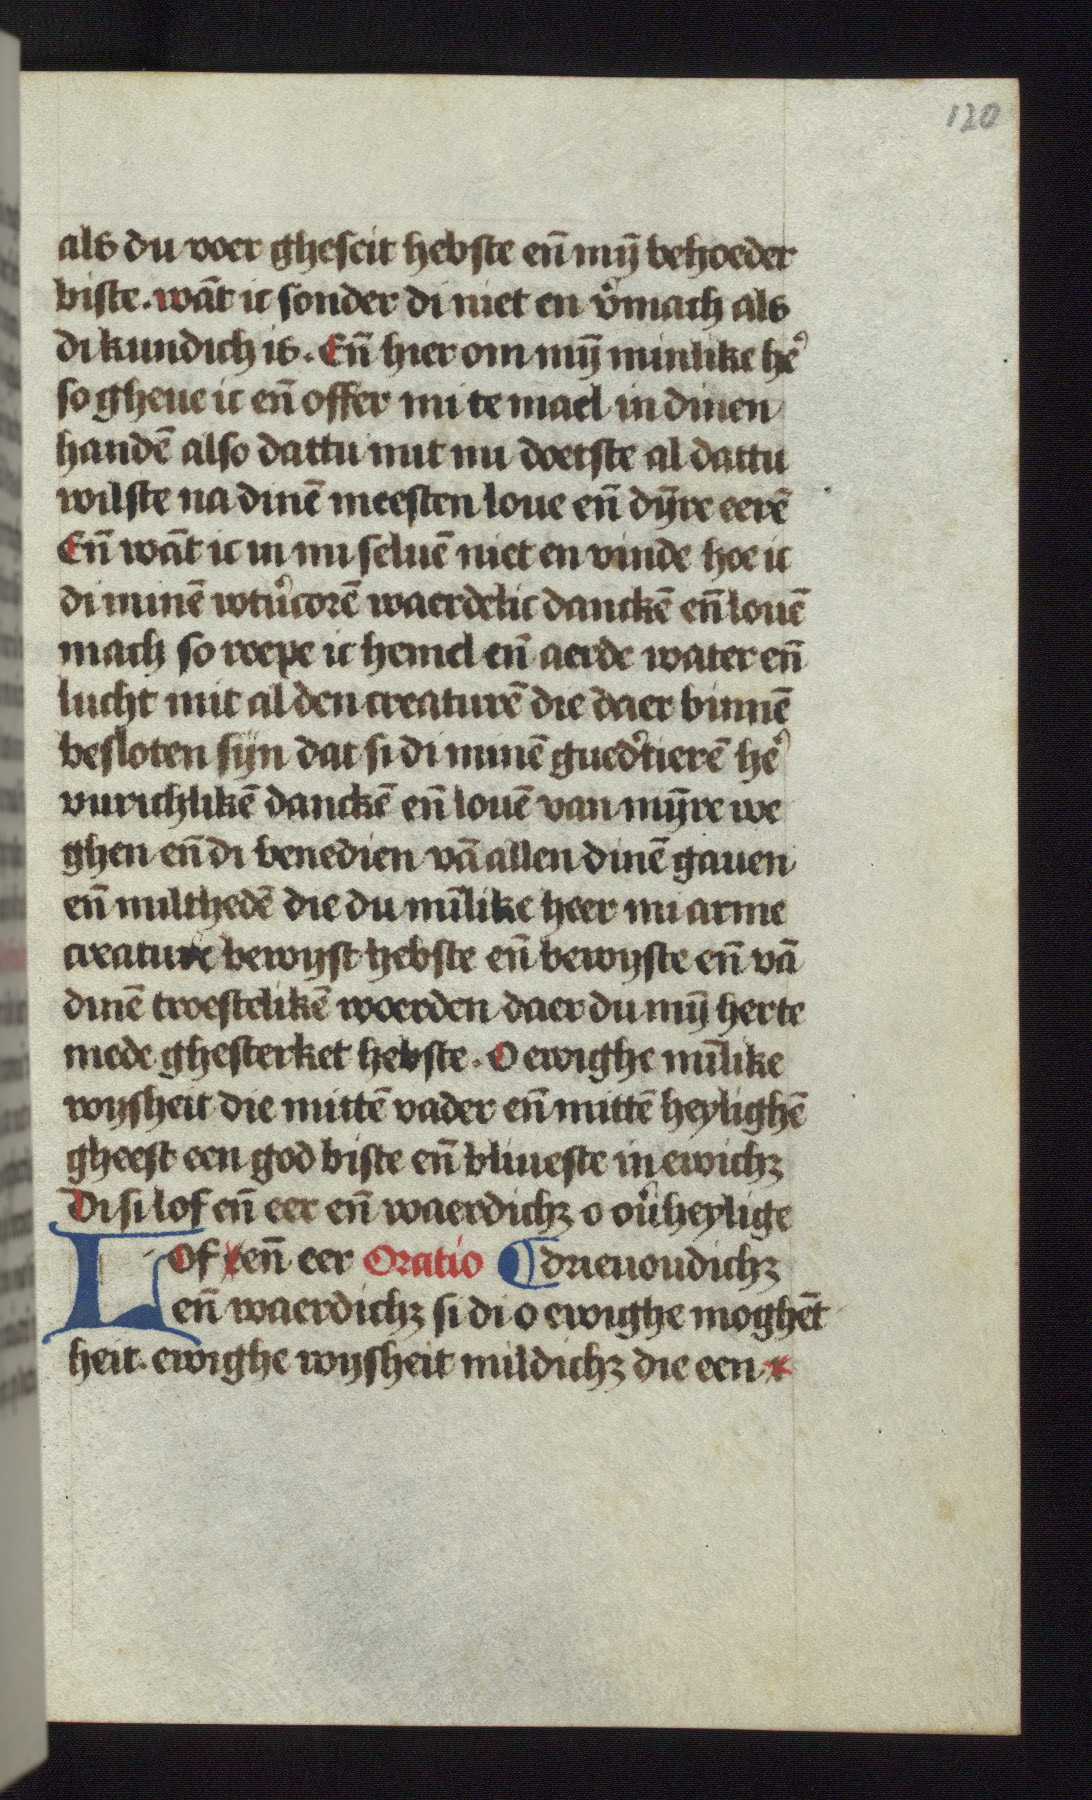 120
als du voer gheseit hebste en̄ mȳ behoeder
biste. wāt ic sonder di niet en v̉mach als
di kundich is. En̄ hier om mȳ minlike hẻ
so gheue ic en̄ offer mi te mael in dinen
handē also dattu mit mi doetste al dattu
wilste na dinē meesten loue en̄ dȳre eerē
En̄ wāt ic in mi seluē niet en vinde hoe ic
di minē wtv̉corē waerdelic danckē en̄ louē
mach so roepe ic hemel en̄ aerde water en̄
lucht mit al den creaturē die daer binnē
besloten sijn dat si di minē gued̉tierē hẻ
vurichlikē danckē en̄ louē van mȳre we
ghen en̄ di benedien vā allen dinē gauen
en̄ milthedē die du mīlike heer mi arme
creature bewijst hebste en̄ bewijste en̄ vā
dinē troestelikē woerden daer du mȳ herte
mede ghesterket hebste. O ewighe mīlike
wijsheit die mittē vader en̄ mittē heylighē
gheest een god biste en̄ bliueste in ewichꝫ
Di si lof en̄ eer en̄ waerdichꝫ o oủheylige
Lof en̄ eer Oratio ¶ drieuoudichꝫ
en̄ waerdichꝫ si di o ewighe moghēt
heit. ewighe wijsheit mildichꝫ die een